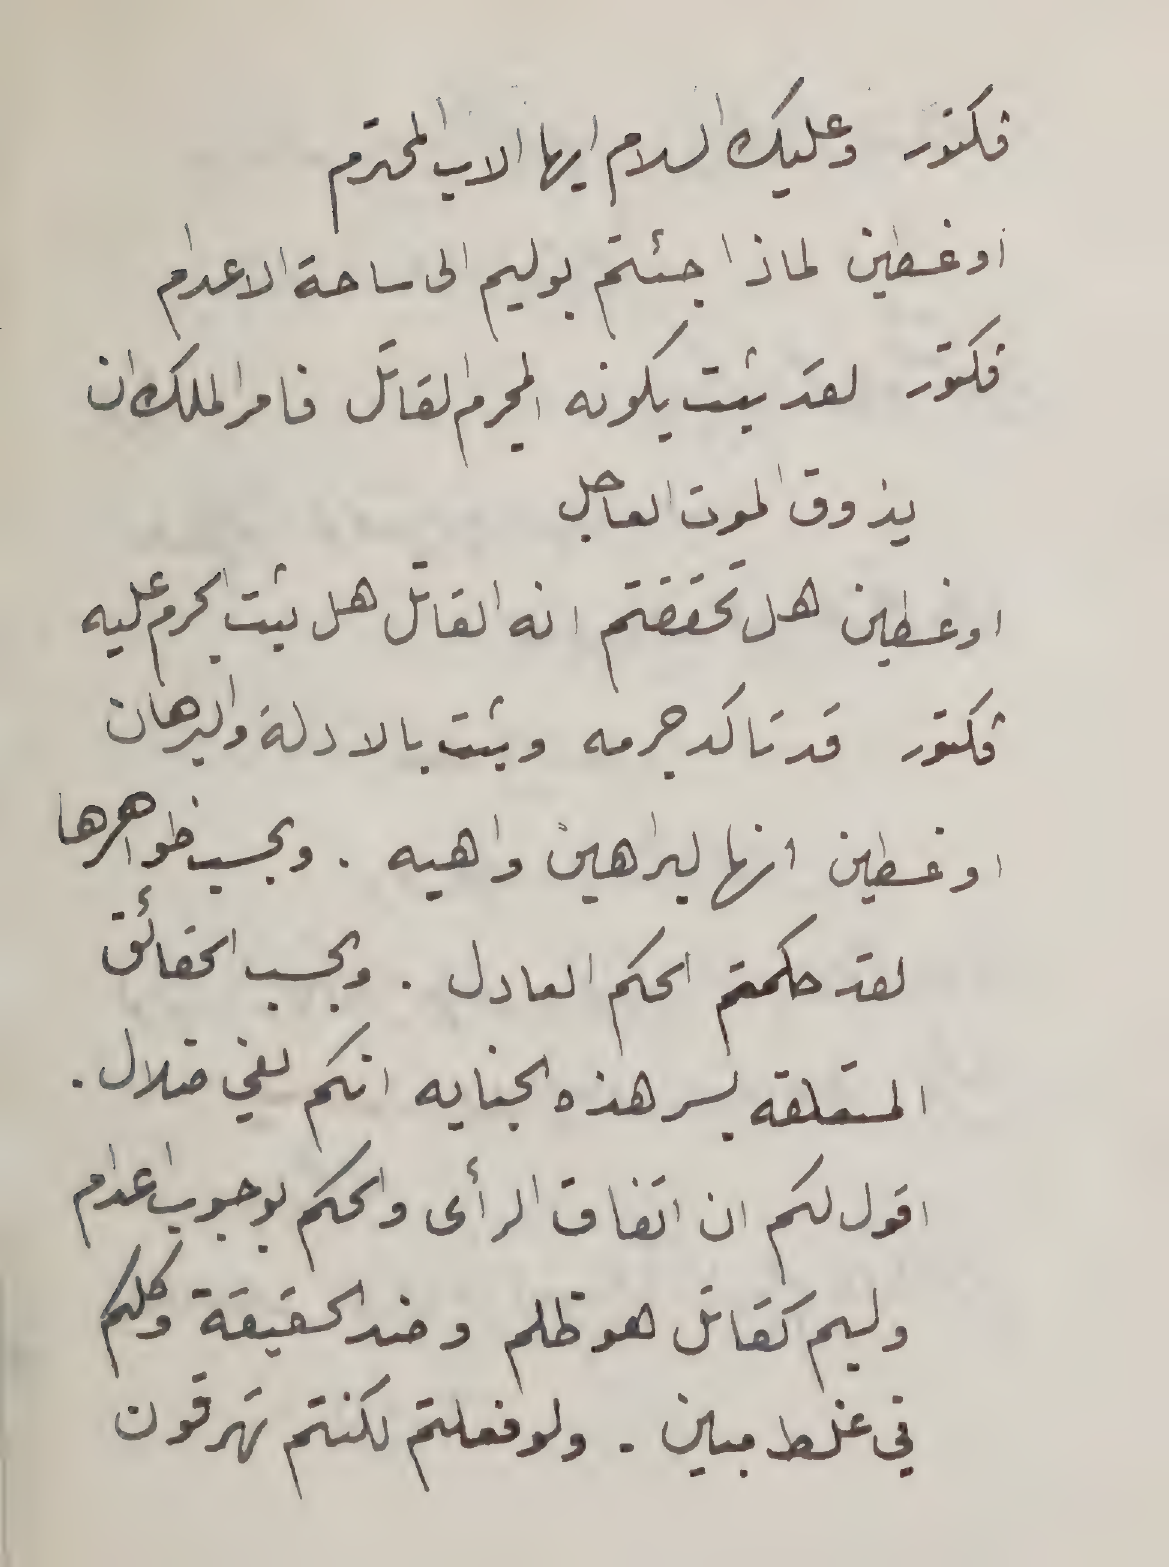 فكتور وعليك السلام ايها الاب المحترم
اوغسطين لماذا جئتم بوليم الى ساحة الاعدام
فكتور لقد ثبت بكونه المجرم القاتل فامر الملك ان
يذوق الموت العاجل
اوغسطين هل تحققتم انه القاتل هل ثبت الجرم عليه
فكتور قد تاكد جرمه وثبت بالادلة والبرهان
اوغسطين انها لبراهين واهيه . وبحسب ظواهرها
لقد حكمتم الحكم العادل . وبحسب الحقائق
المتعلقه بسر هذه الجنايه انكم لفي ضلال .
اقول لكم ان اتفاق الرأى والحكم بوجوب اعدام
وليم كقاتل هو ظلم وضد الحقيقة وكلكم
في غلط مبين . ولو فعلتم لكنتم تهرقون